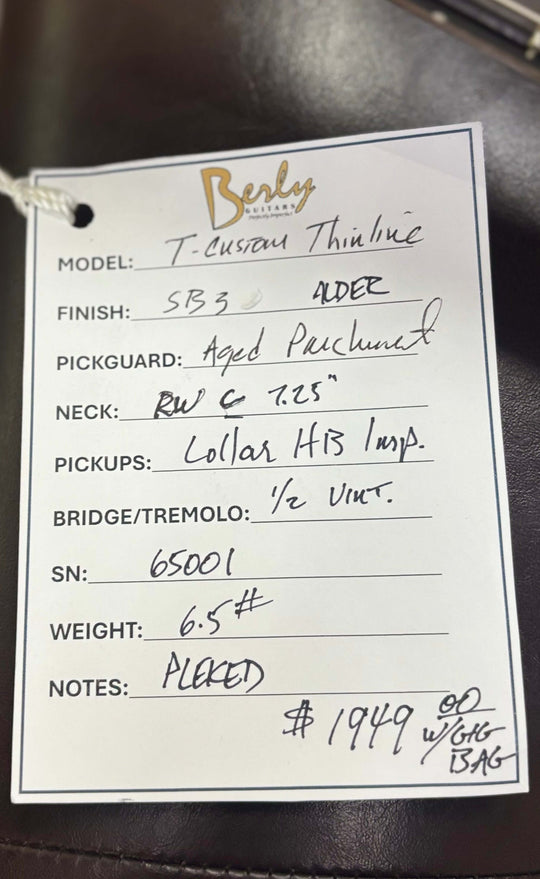 Berly
GUITARS
Perfectly Imperfect
MODEL: T-Custom Thinline
FINISH: SB3 ALDER
PICKGUARD: Aged Parchment
NECK: RW C 7.25"
PICKUPS: Lollar HB Imp.
BRIDGE/TREMOLO: 1/2 VINT.
SN: 65001
WEIGHT: 6.5#
NOTES: PLEKED
$1949 00
W/GIG
BAG